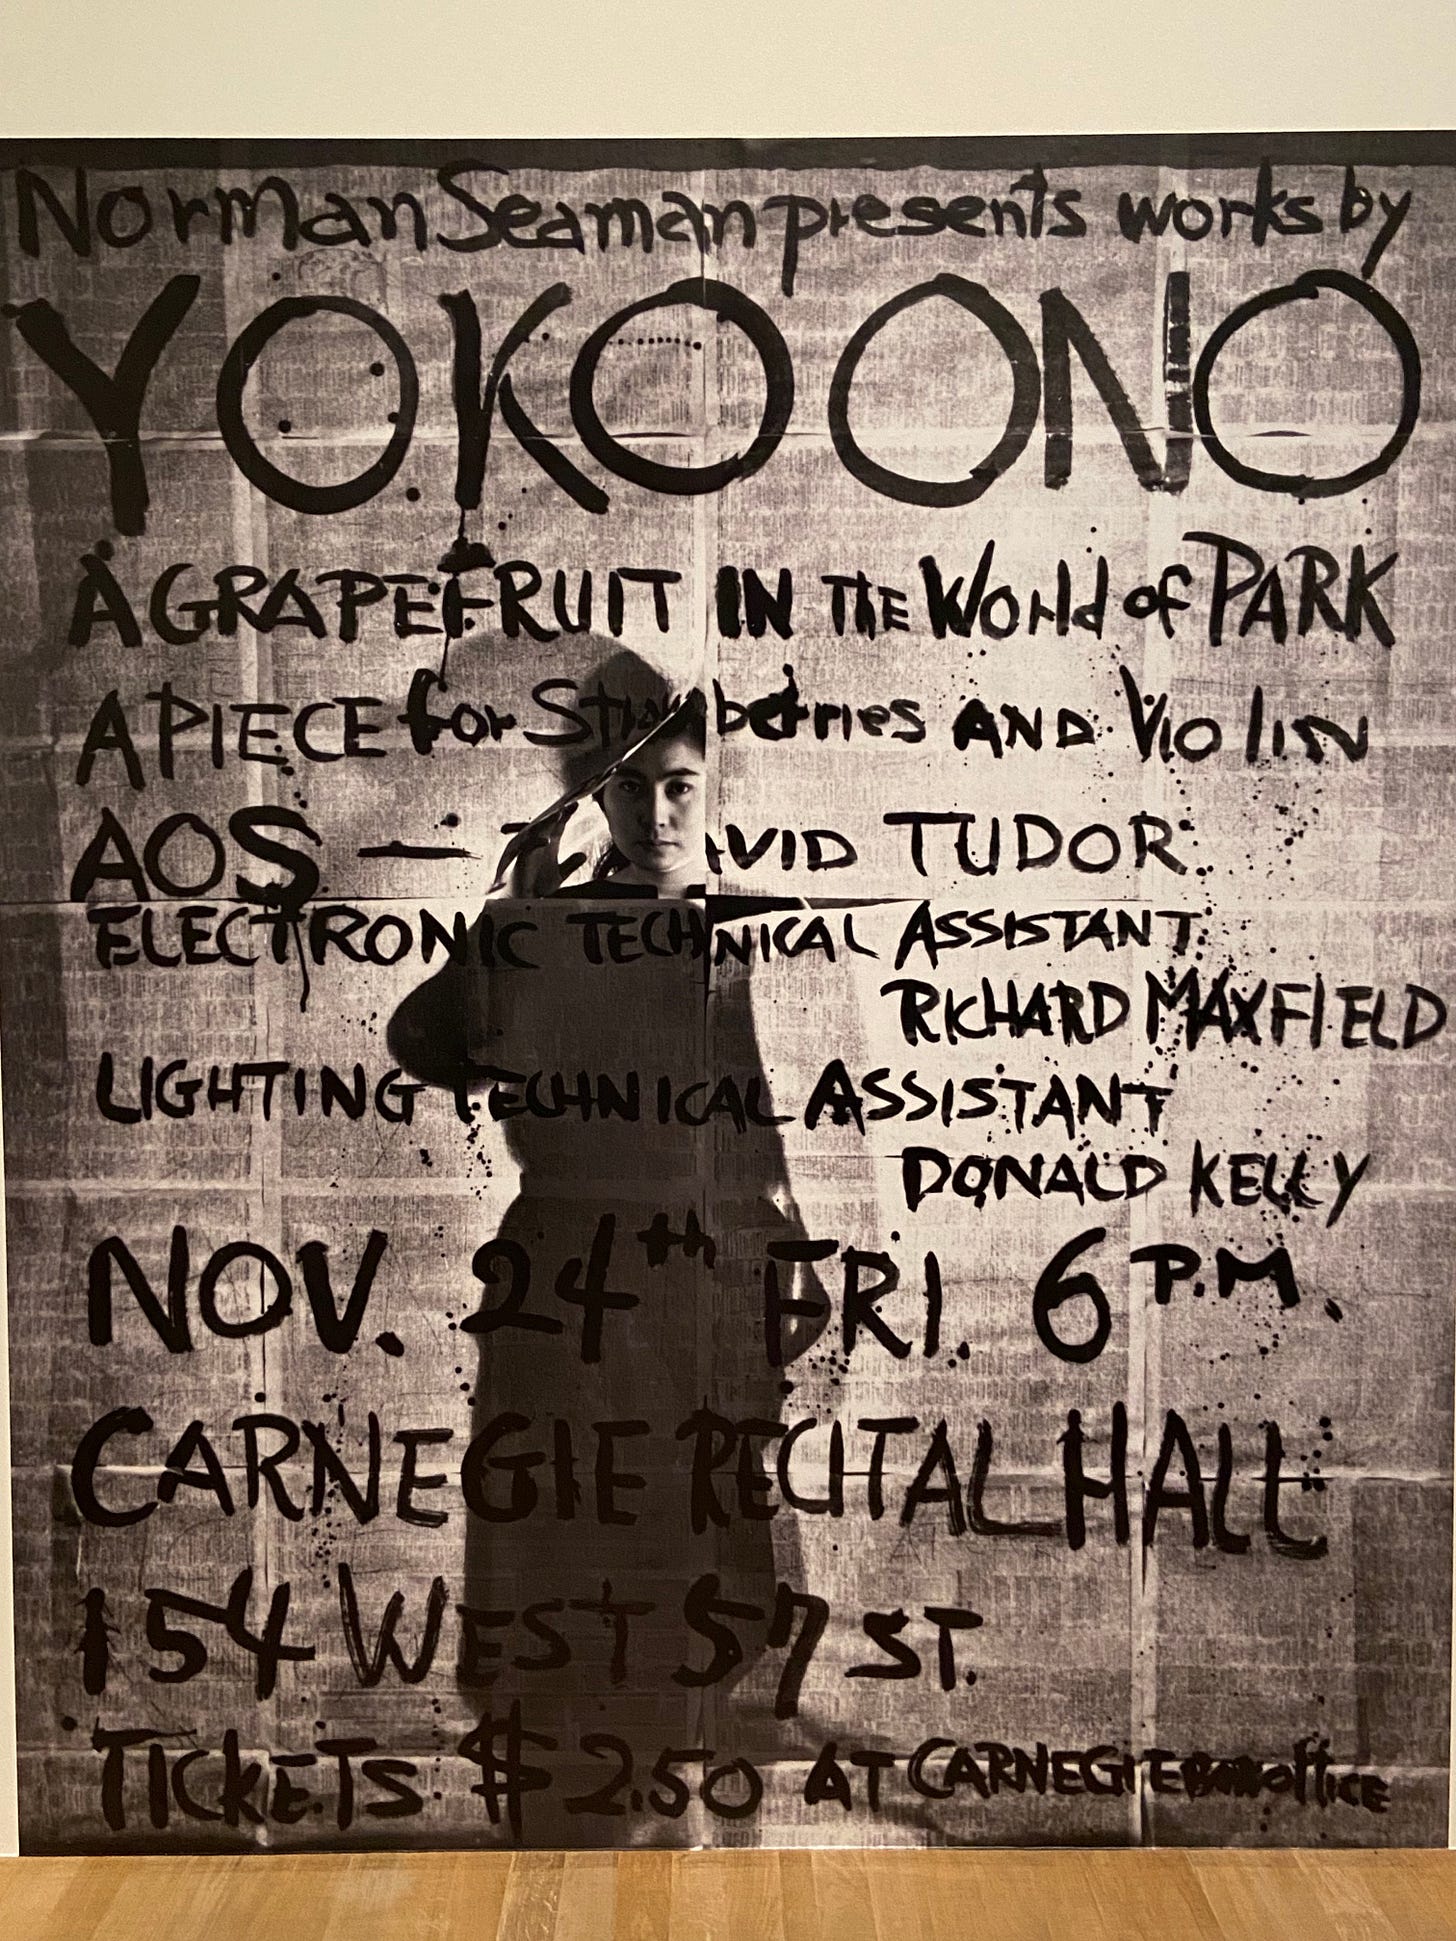 Norman Seaman presents works by
YOKO ONO
A GRAPEFRUIT IN THE World of PARK
A PIECE for Strawberries AND Violin
AOS — DAVID TUDOR
ELECTRONIC TECHNICAL ASSISTANT
RICHARD MAXFIELD
LIGHTING TECHNICAL ASSISTANT
DONALD KELLY
NOV. 24th FRI. 6 P.M.
CARNEGIE RECITAL HALL
154 WEST 57 ST.
TICKETS $2.50 AT CARNEGIE Box office